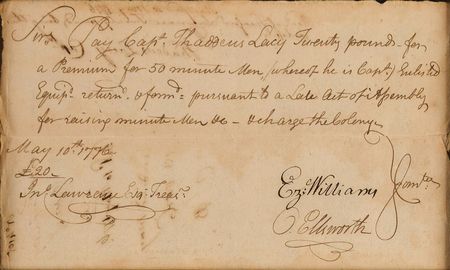 Sir, Pay Capt. Thaddeus Lacy Twenty pounds - for
a Premium for 50 minute Men (whereof he is Capt) Enlisted
Equipd. return. & formd. pursuant to a Late Act of Assembly
for raising minute Men &c - & charge the Colony
May 10th. 1776
£20..
Jno. Lawrence Esqr. Treasr.
Ezl. Williams
O. Ellsworth
Comtee